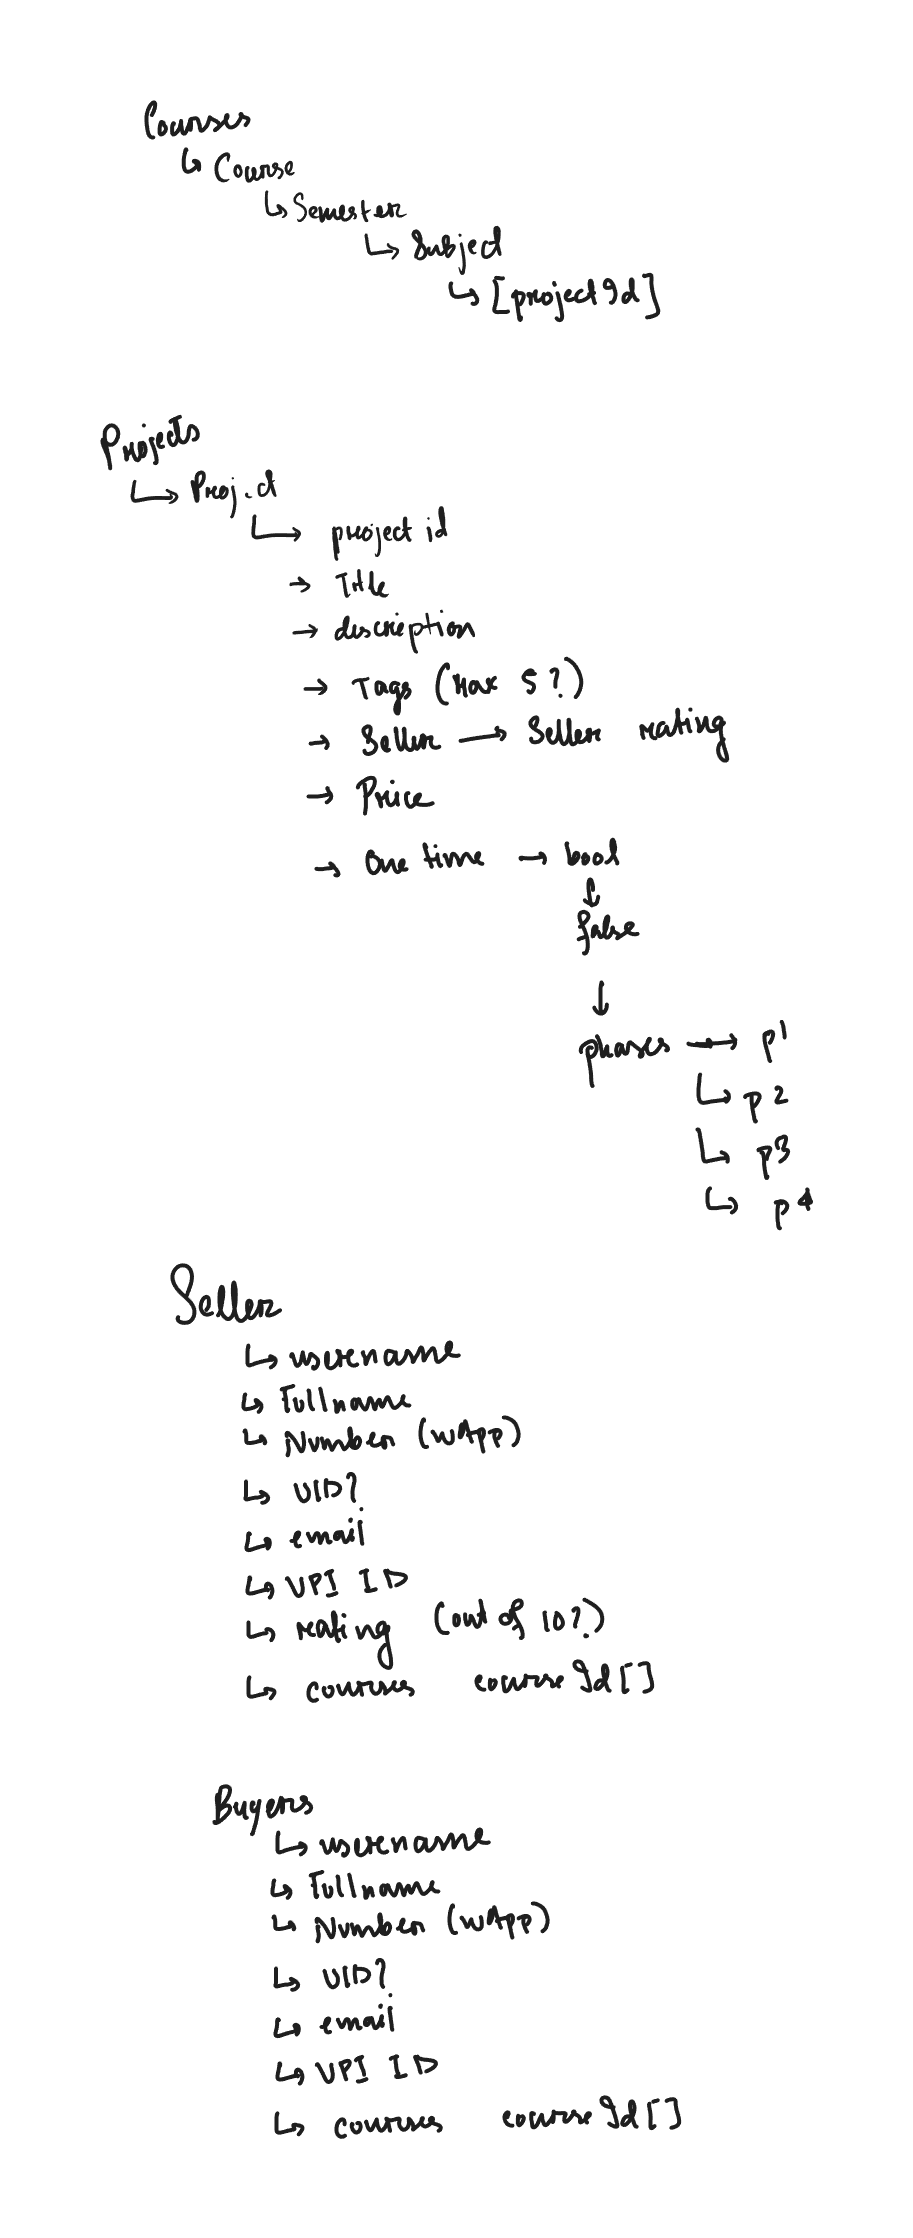 Courses
↳ Course
↳ Semester
↳ Subject
↳ [projectId]
Projects
↳ Project
↳ project id
→ Title
→ description
→ Tags (Max 5?)
→ Seller → Seller rating
→ Price
→ One time → bool
↓
false
↓
phases → p1
↳ p2
↳ p3
↳ p4
Seller
↳ username
↳ Fullname
↳ Number (wApp)
↳ UID?
↳ email
↳ UPI ID
↳ rating (out of 10?)
↳ courses courseId[]
Buyers
↳ username
↳ Fullname
↳ Number (wApp)
↳ UID?
↳ email
↳ UPI ID
↳ courses courseId[]